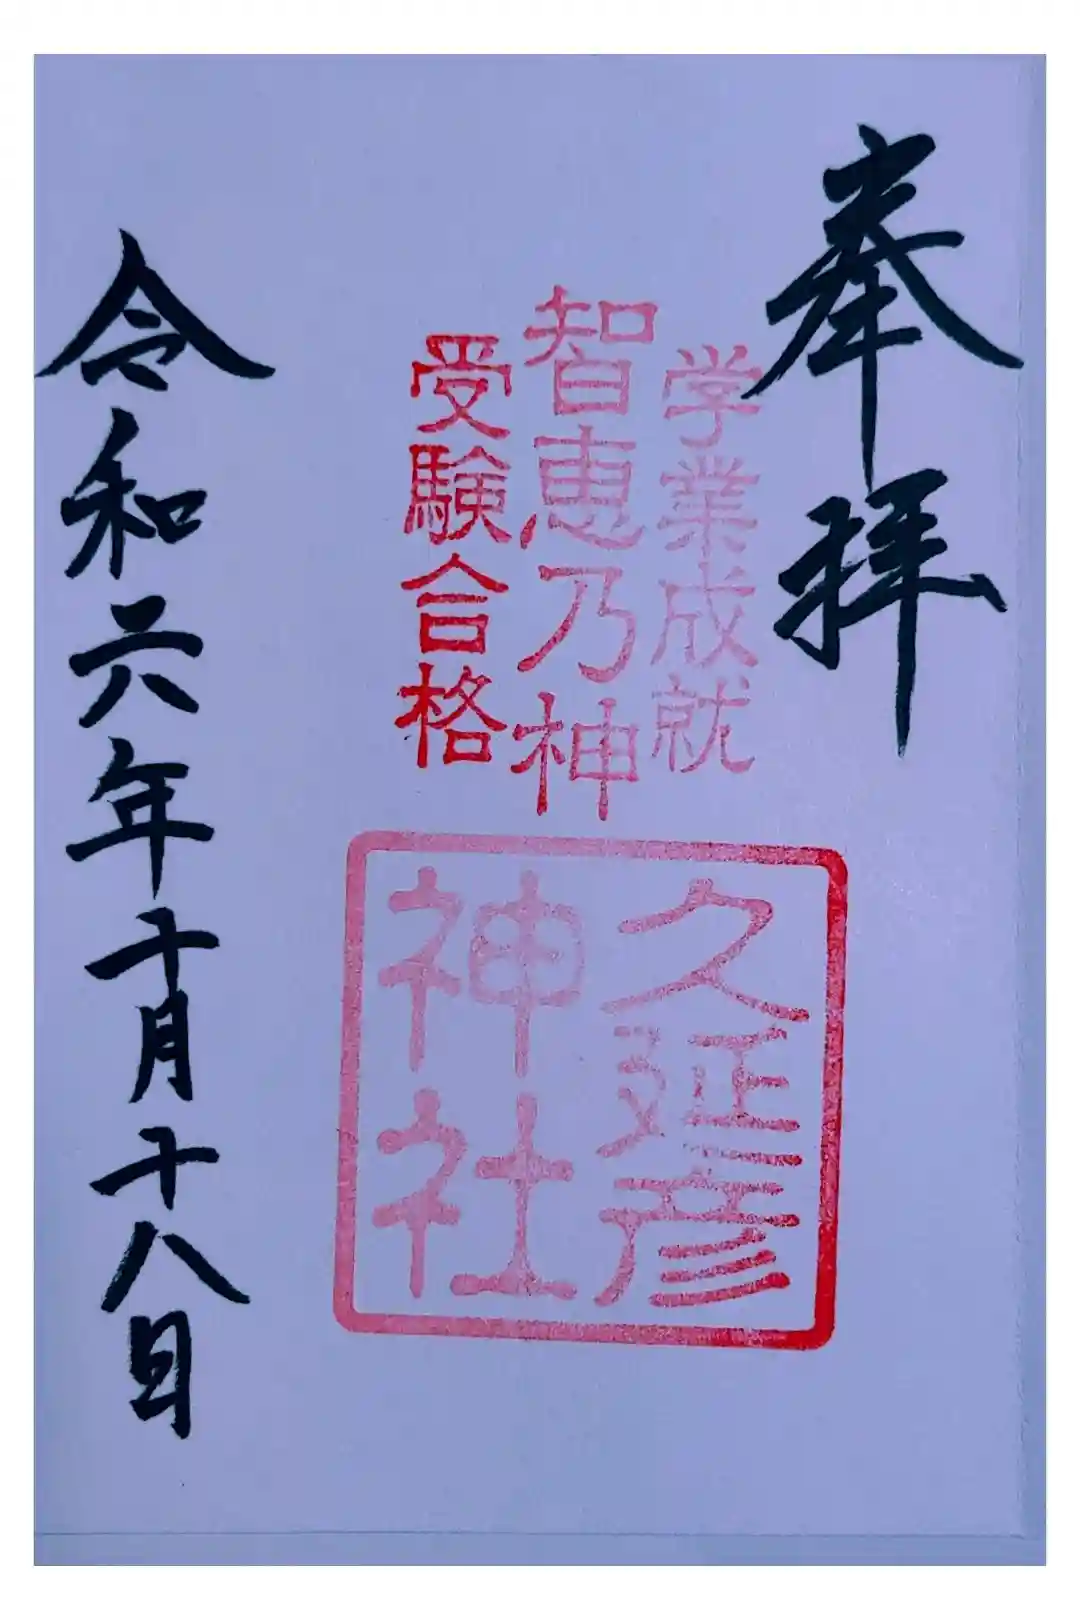 奉拝
学業成就
智恵乃神
受験合格
久延彦
神社
令和六年十月十八日